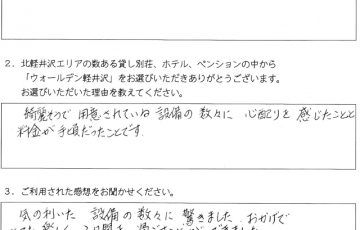 2．北軽井沢エリアの数ある貸し別荘、ホテル、ペンションの中から
「ウォールデン軽井沢」をお選びいただきありがとうございます。
お選びいただいた理由を教えてください。
綺麗そうで 用意されている 設備の数々に 心配りを 感じたことと
料金が手頃だったことです.
3．ご利用された感想をお聞かせください。
気の利いた 設備の数々に 驚きました. おかげで